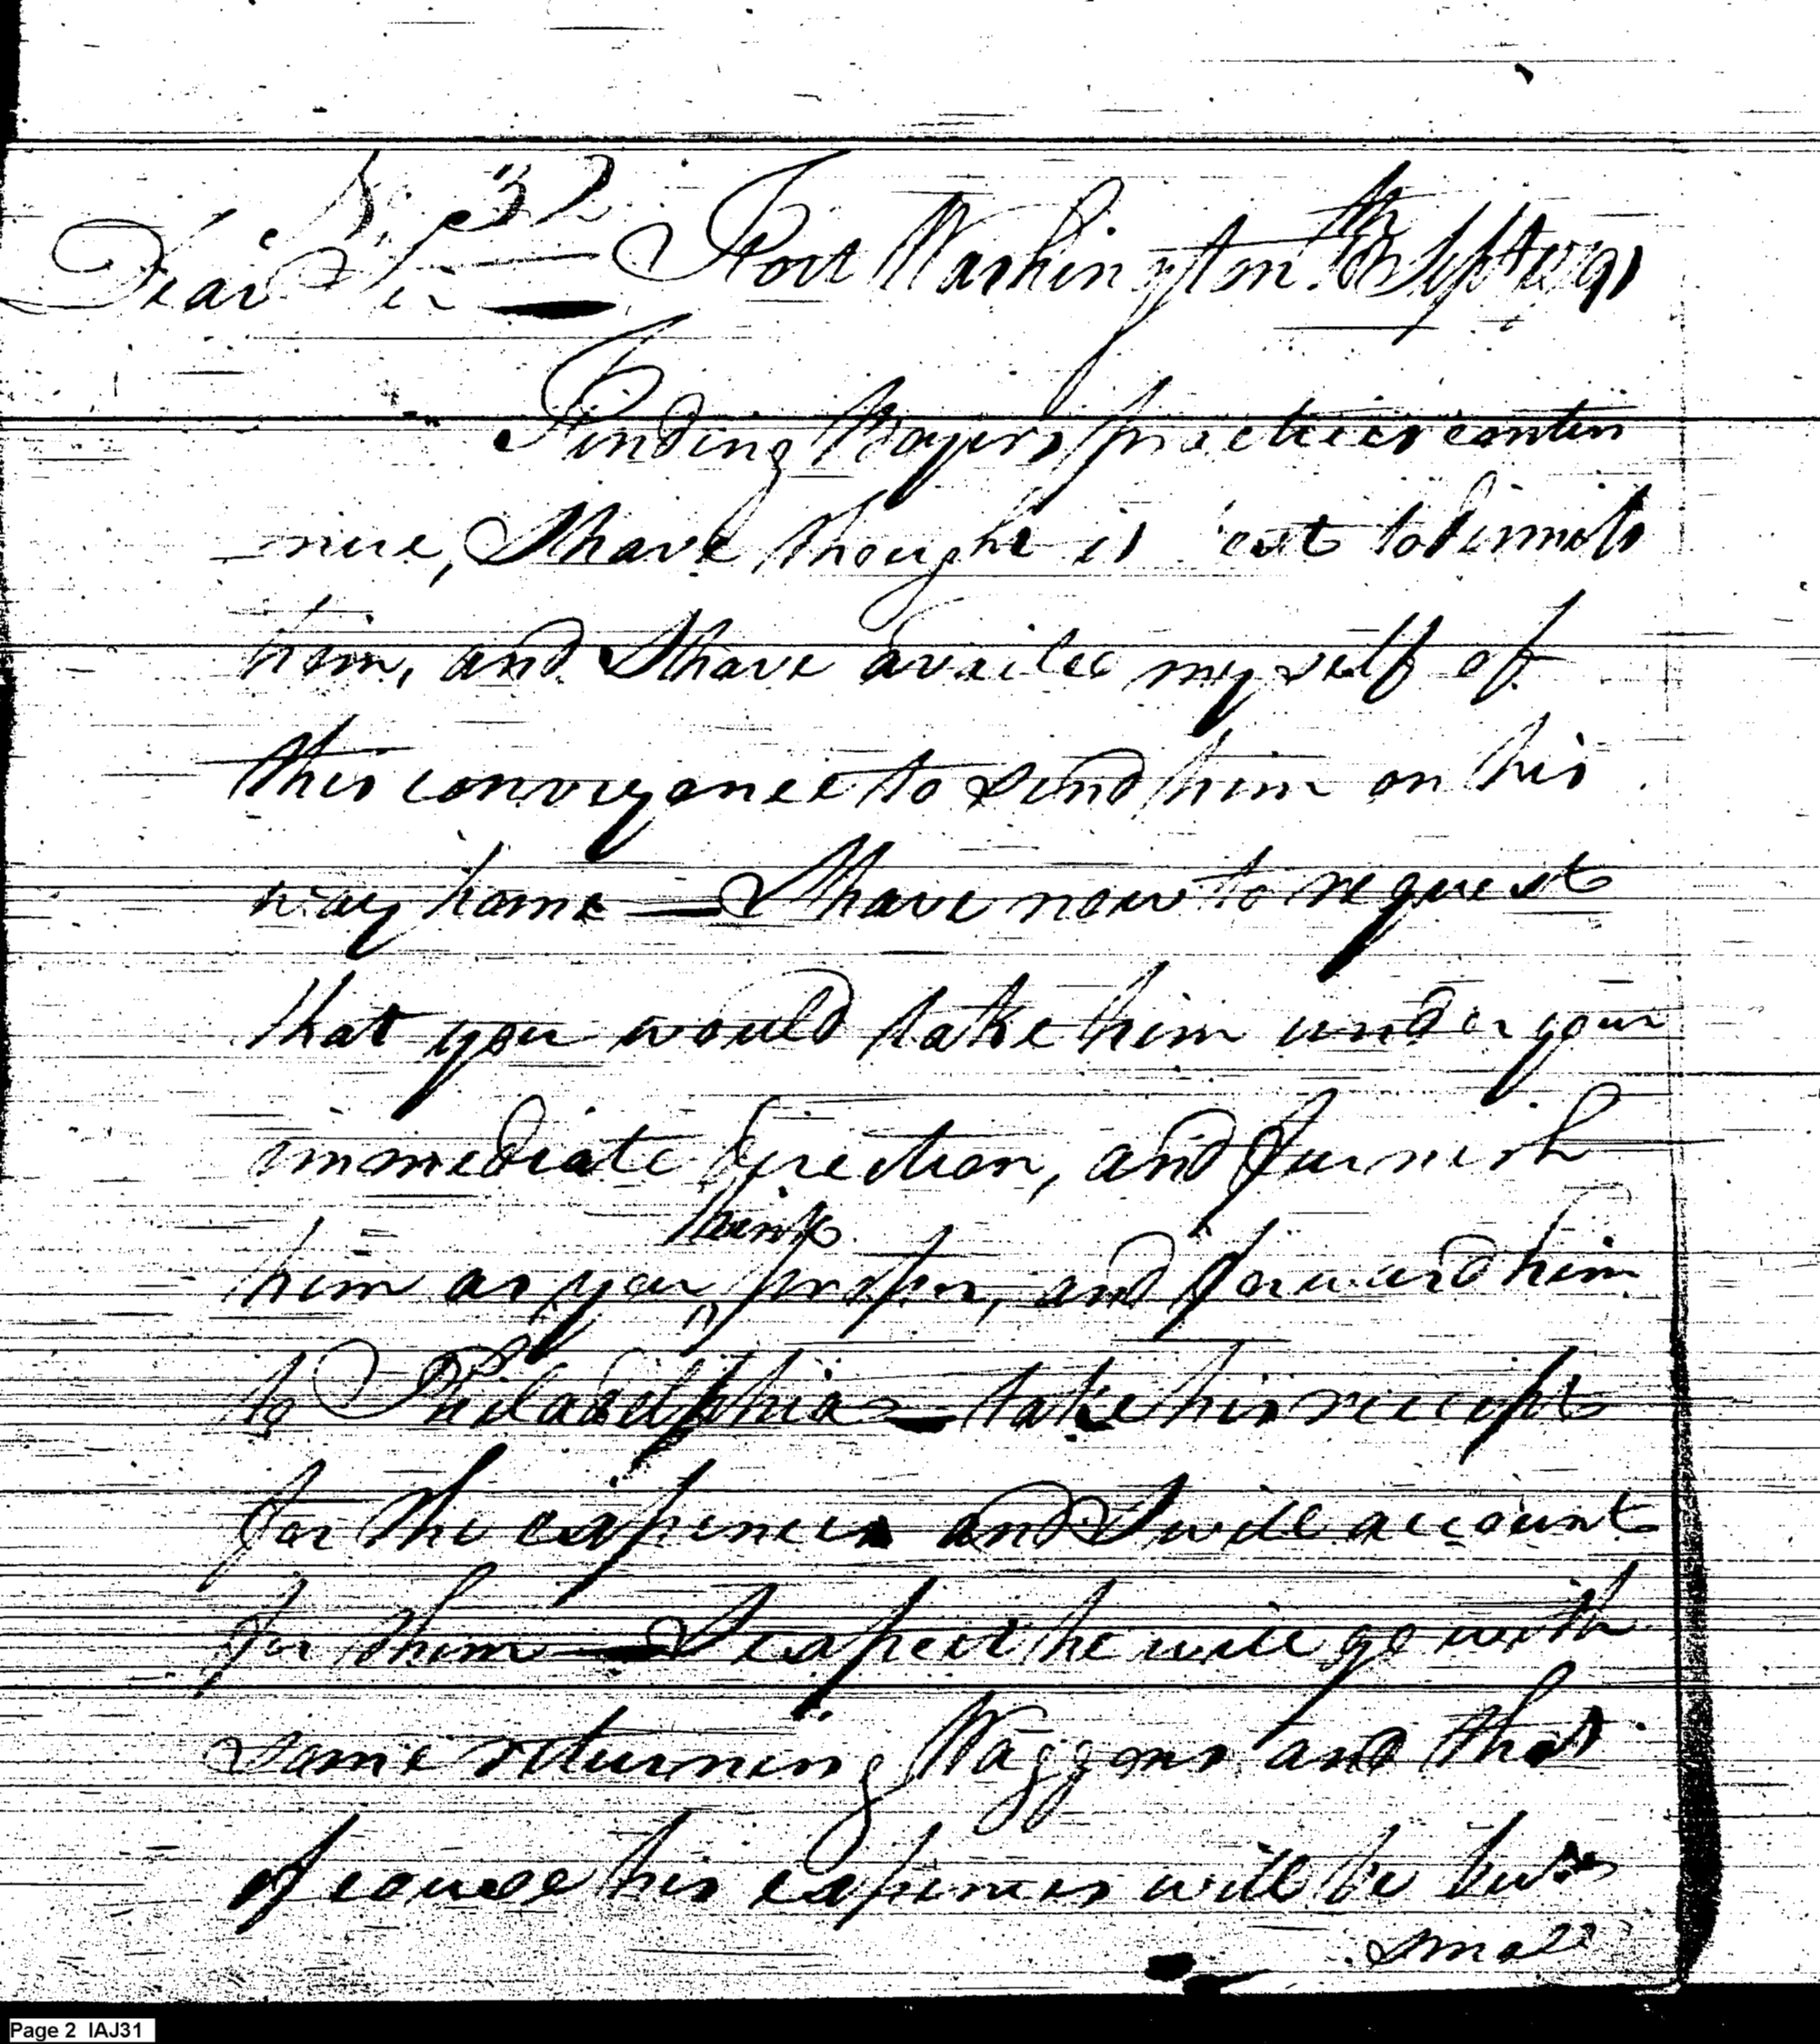 N: 32
Dear Sir — Fort Washington. Sept 1791
Finding practices contin
nue, I have thought it to dismiss
him, and I have availed myself of
this conveyance to send him on his
way home — I have now to request
that you would take him under your
immediate direction, and furnish
think
him as you proper, and forward him
to Philadelphia — take his receipts
for the expences and I will account
for them — I expect he will go with
some returning Waggons and that
of course his expences will be but
small
Page 2 IAJ31